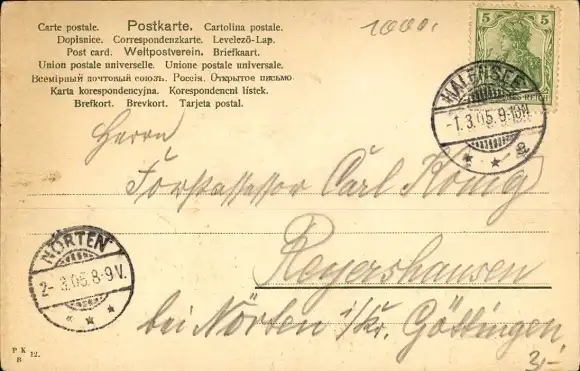 Carte postale. Postkarte. Cartolina postale.
Dopisnice. Correspondenzkarte. Levelező-Lap.
Post card. Weltpostverein. Briefkaart.
Union postale universelle. Unione postale universale.
Всемірный почтовый союзъ. Россія. Открытое письмо.
Karta korespondencyjna. Korespondenčni lístek.
Brefkort. Brevkort. Tarjeta postal.
1000.
5 5
DEUTSCHES REICH
HALENSEE
-1.3.05.9-10N.
* * a
Herrn
Forstassessor Carl König
Reyershausen
bei Nörten i/Kr. Göttingen
NÖRTEN
2-3.05.8-9V.
* * *
P K
B 12.
3,-